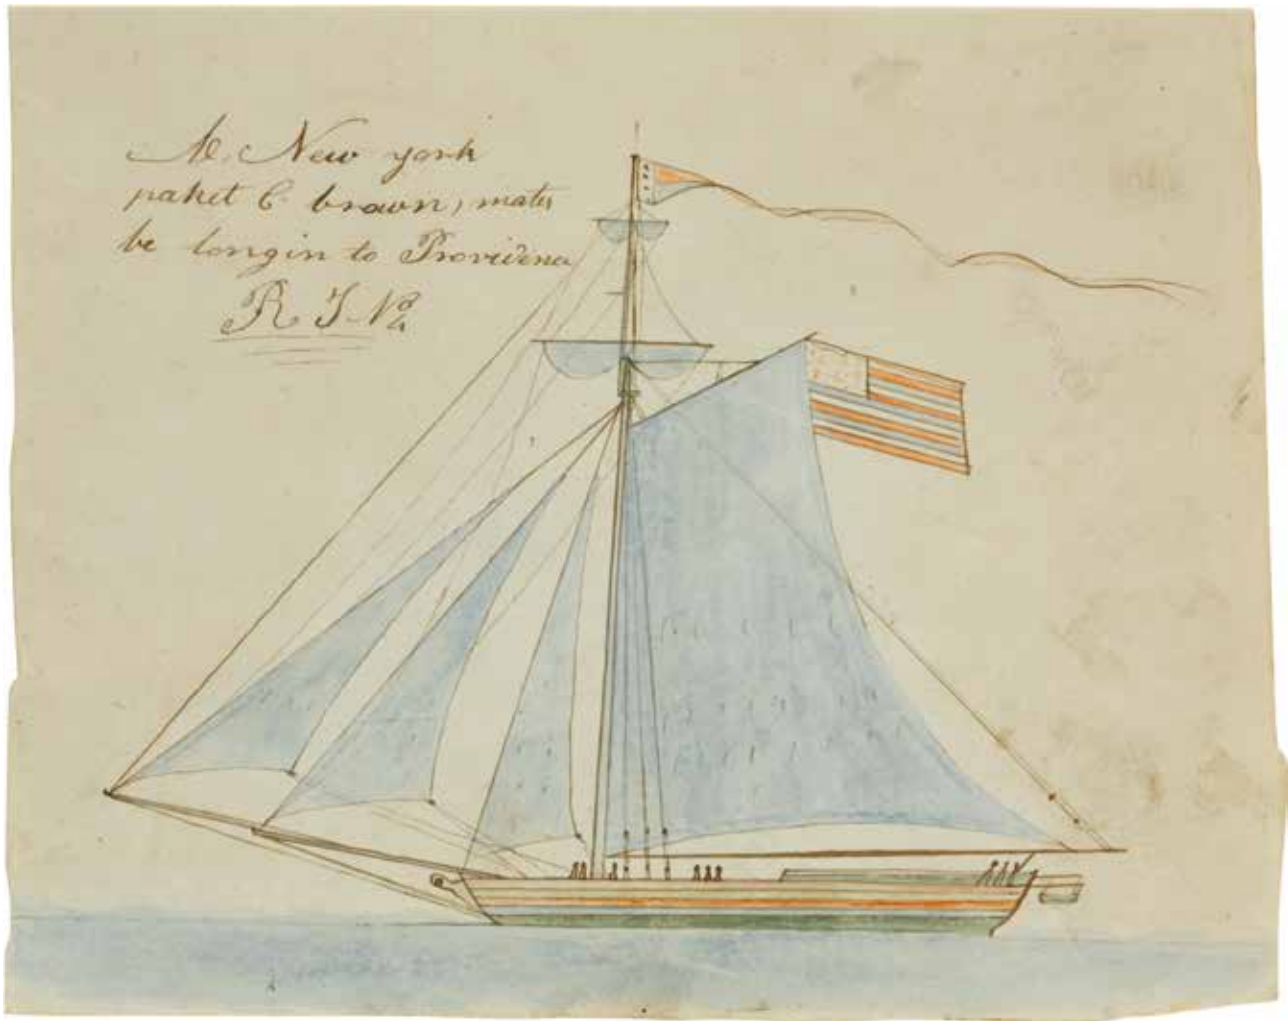 New york
paket C. brown, mater
be longin to Providence
R I No 4